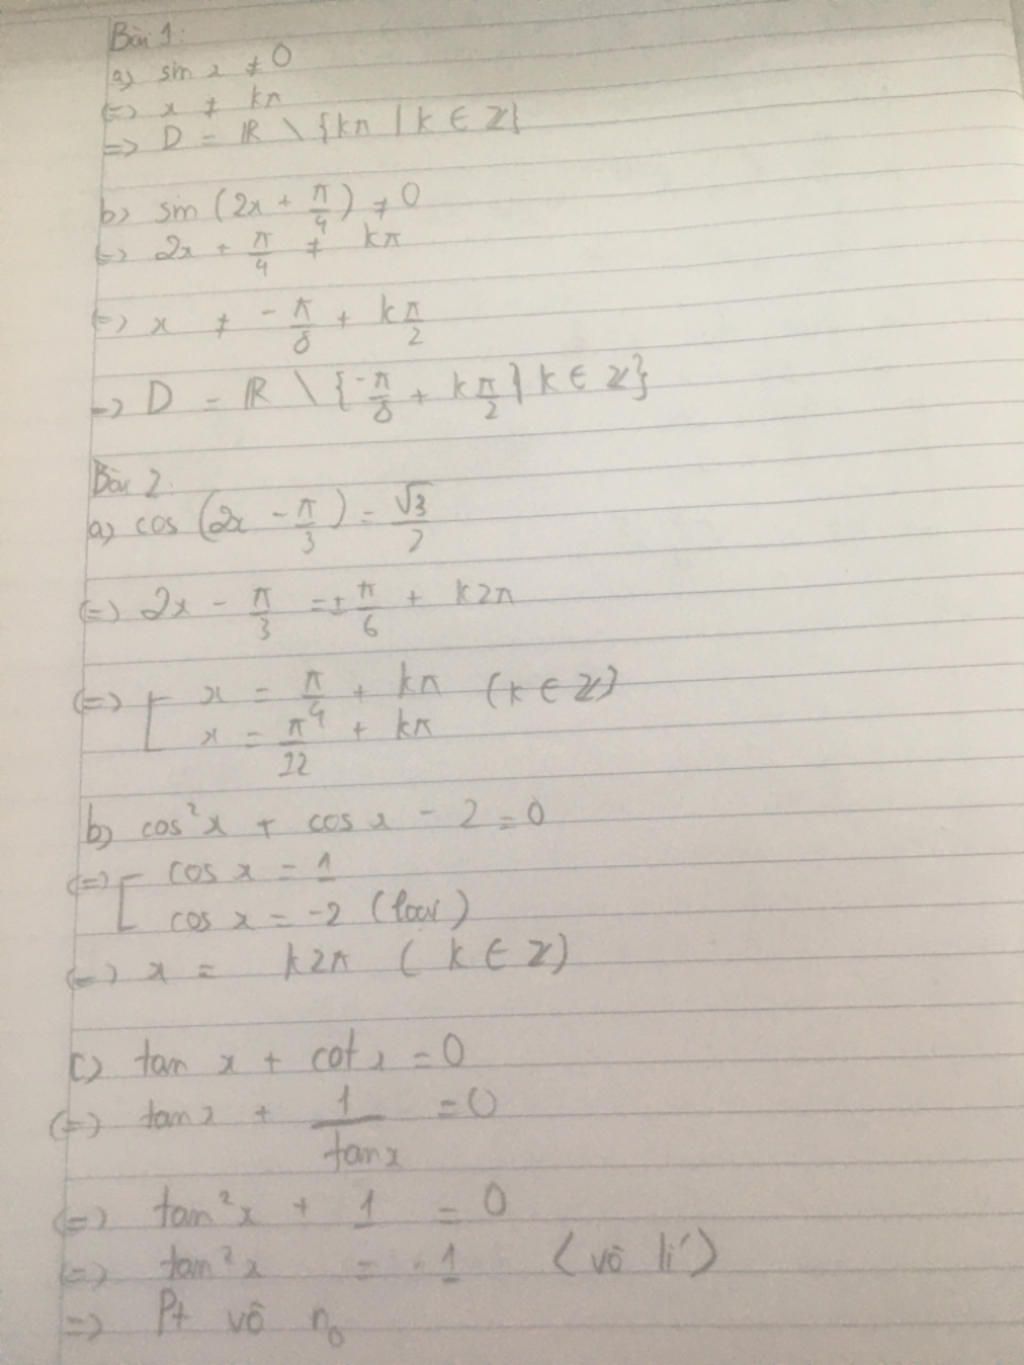 Bài 1:
a) sin x ≠ 0
(=) x ≠ kπ
=> D = ℝ \ {kπ | k ∈ Z}
b) sin (2x + π/4) ≠ 0
(=) 2x + π/4 ≠ kπ
(=) x ≠ -π/8 + kπ/2
=> D = ℝ \ {-π/8 + kπ/2 | k ∈ Z}
Bài 2:
a) cos (2x - π/3) = √3/2
(=) 2x - π/3 = ± π/6 + k2π
(=) [ x = π/4 + kπ (k ∈ Z)
x = π/12 + kπ
b) cos²x + cos x - 2 = 0
(=) [ cos x = 1
cos x = -2 (loại)
(=) x = k2π ( k ∈ Z)
c) tan x + cot x = 0
(=) tan x + 1/tan x = 0
(=) tan²x + 1 = 0
(=) tan²x = -1 (vô lí)
=> Pt vô n₀